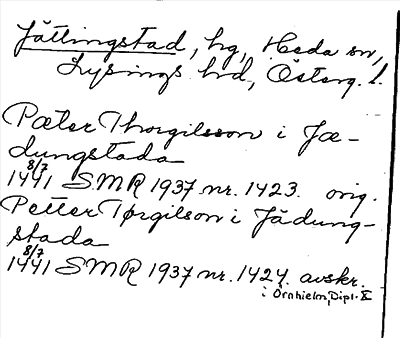 Jättingstad, hg, Heda sn,
Lysings hd, Österg. l.
Pæter Thorgilsson i Jæ-
dungstada
8/7
1441 SMR 1937 nr. 1423. orig.
Petter Törgilson i Jädung-
stada
8/7
1441 SMR 1937 nr. 1424. avskr.
i Örnhielm, Dipl. X